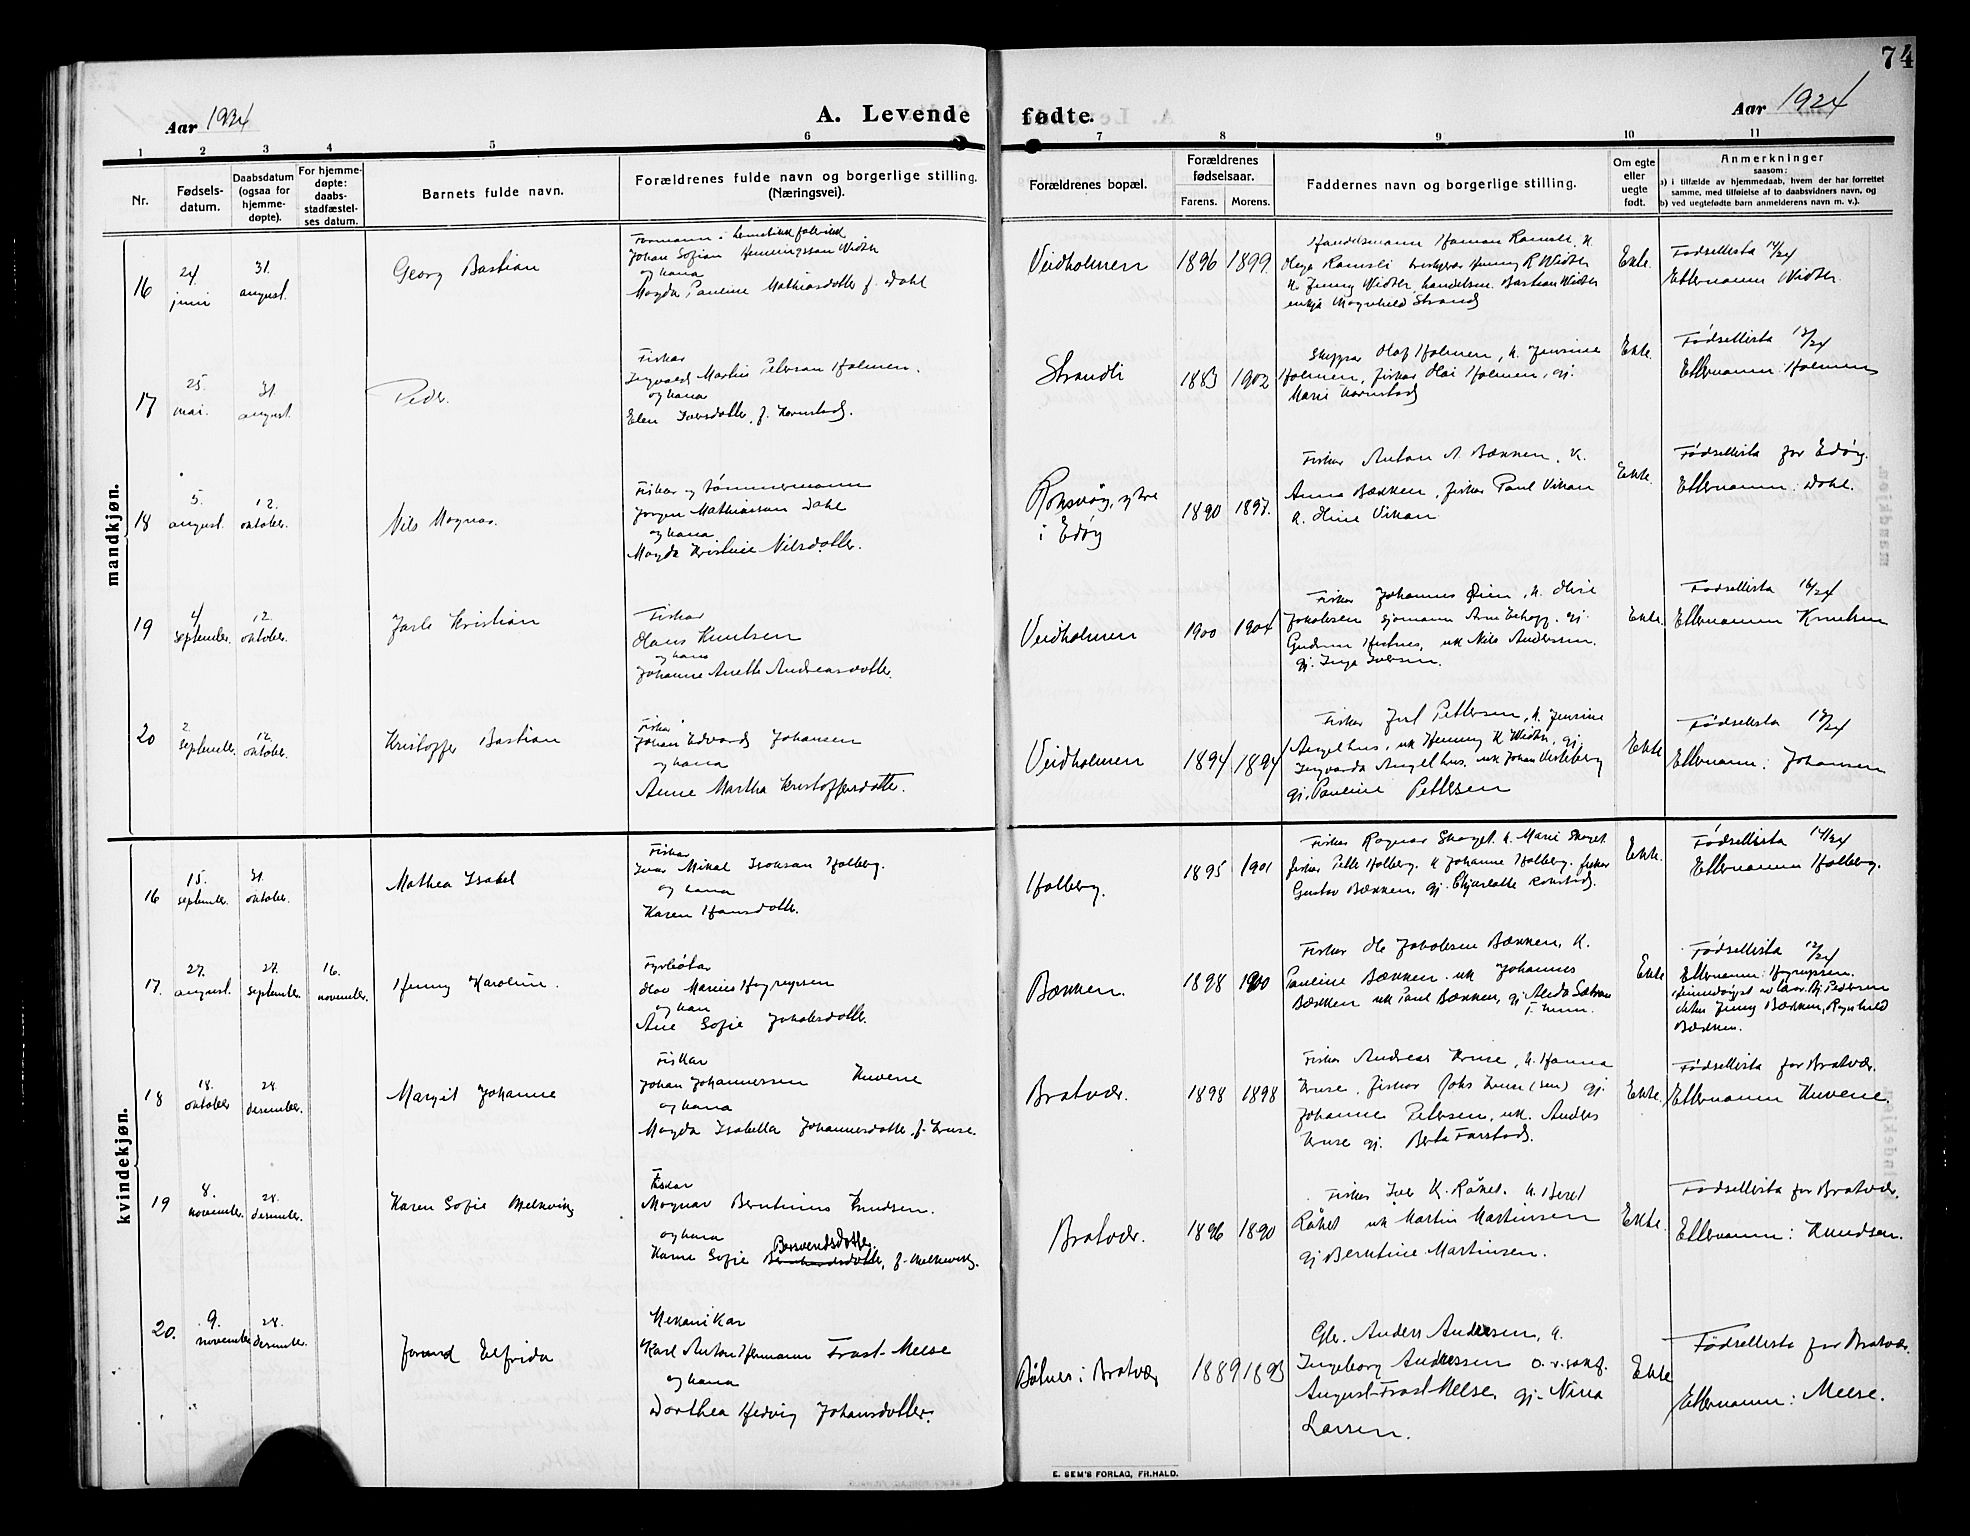 74
Aar 1924
A. Levende fødte.
Aar 1924
1 2 3 4 5 6 7 8 9 10 11
Nr.
Fødsels-
datum.
Daabsdatum
(ogsaa for
hjemme-
døpte).
For hjemme-
døpte:
daabs-
stadfæstel-
ses datum.
Barnets fulde navn.
Forældrenes fulde navn og borgerlige stilling.
(Næringsvei).
Forældrenes bopæl.
Forældrenes
fødselsaar.
Farens. Morens.
Faddernes navn og borgerlige stilling.
Om egte
eller
uegte
født.
Anmerkninger
saasom:
a) i tilfælde av hjemmedaab, hvem der har forrettet
samme, med tilføielse af to daabsvidners navn, og
b) ved uegtefødte barn anmelderens navn m. v.).
mandkjøn.
16
24
juni
31.
august.
Georg Bastian
Formann i hermetikkfabrikk
Johan Sofian Henningssan Width
og kona
Magda Pauline Mathiasdotter f. Dahl
Veidholmen
1896 1899
Handelsmann Haman Ramsli, k.
Olga Ramsli Henny R Width
k. Jenny Width, handelsm. Bastian Width
enkja Magnhild Strand
Ekte.
Fødsellista 14/24
Etternamn Width.
17
25.
mai.
31.
august.
Peder.
Fiskar
Ingvald Martin Petersan Holmen.
og kona
Elen Iversdotter, f. Kornstad.
Strandli
1883 1902
Skippar Olaf Holmen, k. Jensine
Holmen, fiskar Olai Holmen, gj.
Marie Kornstad
Ekte.
Fødsellista 13/24
Etternamn: Holmen
18
5.
august.
12.
oktober.
Nils Magnar.
Fiskar og tømmermann
Jørgen Mathiassan Dahl
og kona
Magda Kristine Nilsdotter.
Roksvåg, ytre
i Edøy
1890 1897.
Fiskar Anton A. Bækken, k.
Anna Bækken, fiskar Paul Vikan
k. Oline Vikan
Ekte.
Fødsellista for Edøy.
Etternamn: Dahl.
19
4
september.
12.
oktober.
Jarle Kristian
Fiskar
Hans Knutsen
og kona
Johanne Anette Andreasdotter.
Veidholmen
1900 1904
Fiskar Johannes Øien, k. Olise
Jakobsen sjømann Arne gj.
Gudrun uk Nils Anderssen.
gj. Inga Iversen.
Ekte.
Fødsellista 16/24
Etternamn Knutsen
20
2.
september.
12.
oktober.
Kristoffer Bastian
Fiskar
Johan Edvard Johansen
og kona
Anne Martha Kristoffersdotter.
Veidholmen
1894 1894
Fiskar Juel Pettersen, k. Jensine
Angelhus, uk Henning K Width, gj.
Ingvarda Angelhus. uk Johan
gj. Pauline Pettersen
Ekte
Fødsellista 17/24
Etternamn: Johansen
kvindekjøn.
16
15.
september.
31.
oktober.
Mathea Isabel
Fiskar
Ivar Mikal Isaksan Holberg.
og kona
Karen Hansdotter.
Holberg.
1895 1901
Fiskar Ragnar Skaget k. Marie Skaget
fiskar Petter Holberg. k Johanne Holberg. fiskar
Gustav Bækken, gj. Charlotte Rokstad.
Ekte.
Fødsellista 14/24
Etternamn Holberg.
17.
27.
august.
27.
september.
16.
november.
Henny Karoline.
Fyrbøtar
Olai Marius Høgrupsen
og kona
Ane Sofie Jakobsdotter.
Bækken.
1898 1900
Fiskar Ole Jakobsen Bækken, k.
Pauline Bækken. uk Johannes
Bækken uk Paul Bækken, gj Alida
Ekte
Fødsellista 12/24
Etternamn: Høgrupsen.
heimedøypt av lærar Bj Pedersen
Jenny Bækken, Ragnhild
Bækken.
18
18.
oktober
28.
desember.
Margit Johanne
Fiskar
Johan Johannessen Kuvene
og kona
Magda Isabella Johannesdotter, f. Kruse.
Bratvær.
1898 1898
Fiskar Andreas Kruse, k. Hanna
Kruse, fiskar Johs Kruse (sen) gj.
Johanne Petersen, uk. Anders
Kruse gj. Berta Farstad.
Ekte.
Fødsellista for Bratvær.
Etternamn Kuvene.
19
8.
november.
28.
desember.
Karen Sofie Melkvik
Fiskar
Magnar Berntinus Knudsen.
og kona
Karne Sofie Bersvendsdotter, f. Melkevik.
Bratvær.
1896 1890
Fiskar Iver K. Råket. k. Beret
Råket uk Martin Martinsen
gj Berntine Martinsen.
Ekte.
Fødsellista for Bratvær.
Etternamn: Knudsen.
20.
9.
november
28.
desember.
Jorund Elfrida
Mekanikar
Karl Anton Hermann Frost-Melse
og kona
Dorthea Hedvig Johansdotter.
Båtnes i Bratvær
1889 1893
Gbr. Anders Andersen, k.
Ingeborg Anderssen
August Frost-Melse, gj. Nina
Larsen.
Ekte
Fødsellista for Bratvær.
Etternamn: Melse.
E. SEM'S FORLAG, FR.HALD.